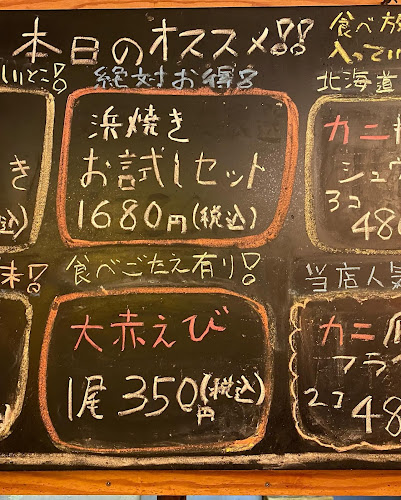 本日のオススメ!!
食べ放
入ってい
いとこ!
絶対お得!
北海道
き
込)
浜焼き
お試しセット
1680円(税込)
カニ
シュウ
3コ
48
末!
食べごたえ有り!
当店人気
大赤えび
1尾 350円(税込)
カニ
フラ
2コ
48